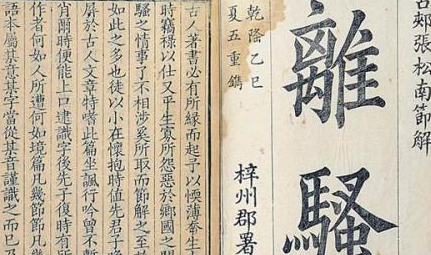 古郟張松南節解
離騷
乾隆乙巳
夏五重鐫
梓州郡署
古人著書必有所緣而起予以愞薄奉生
時竊祿以仕又平生寡所怨惡於鄉國之間
騷之情事了不相涉奚所取而節解之至於
如此之多也徒以小在懷抱時值先君子
屏於古人文章特嗜此篇坐諷行吟曾不暫
肖爾時便能上口逮識字後先子復時有所
作者何如人所遭何如境篇凡幾節節凡
語本屬某意某字當從某音謹識之而已